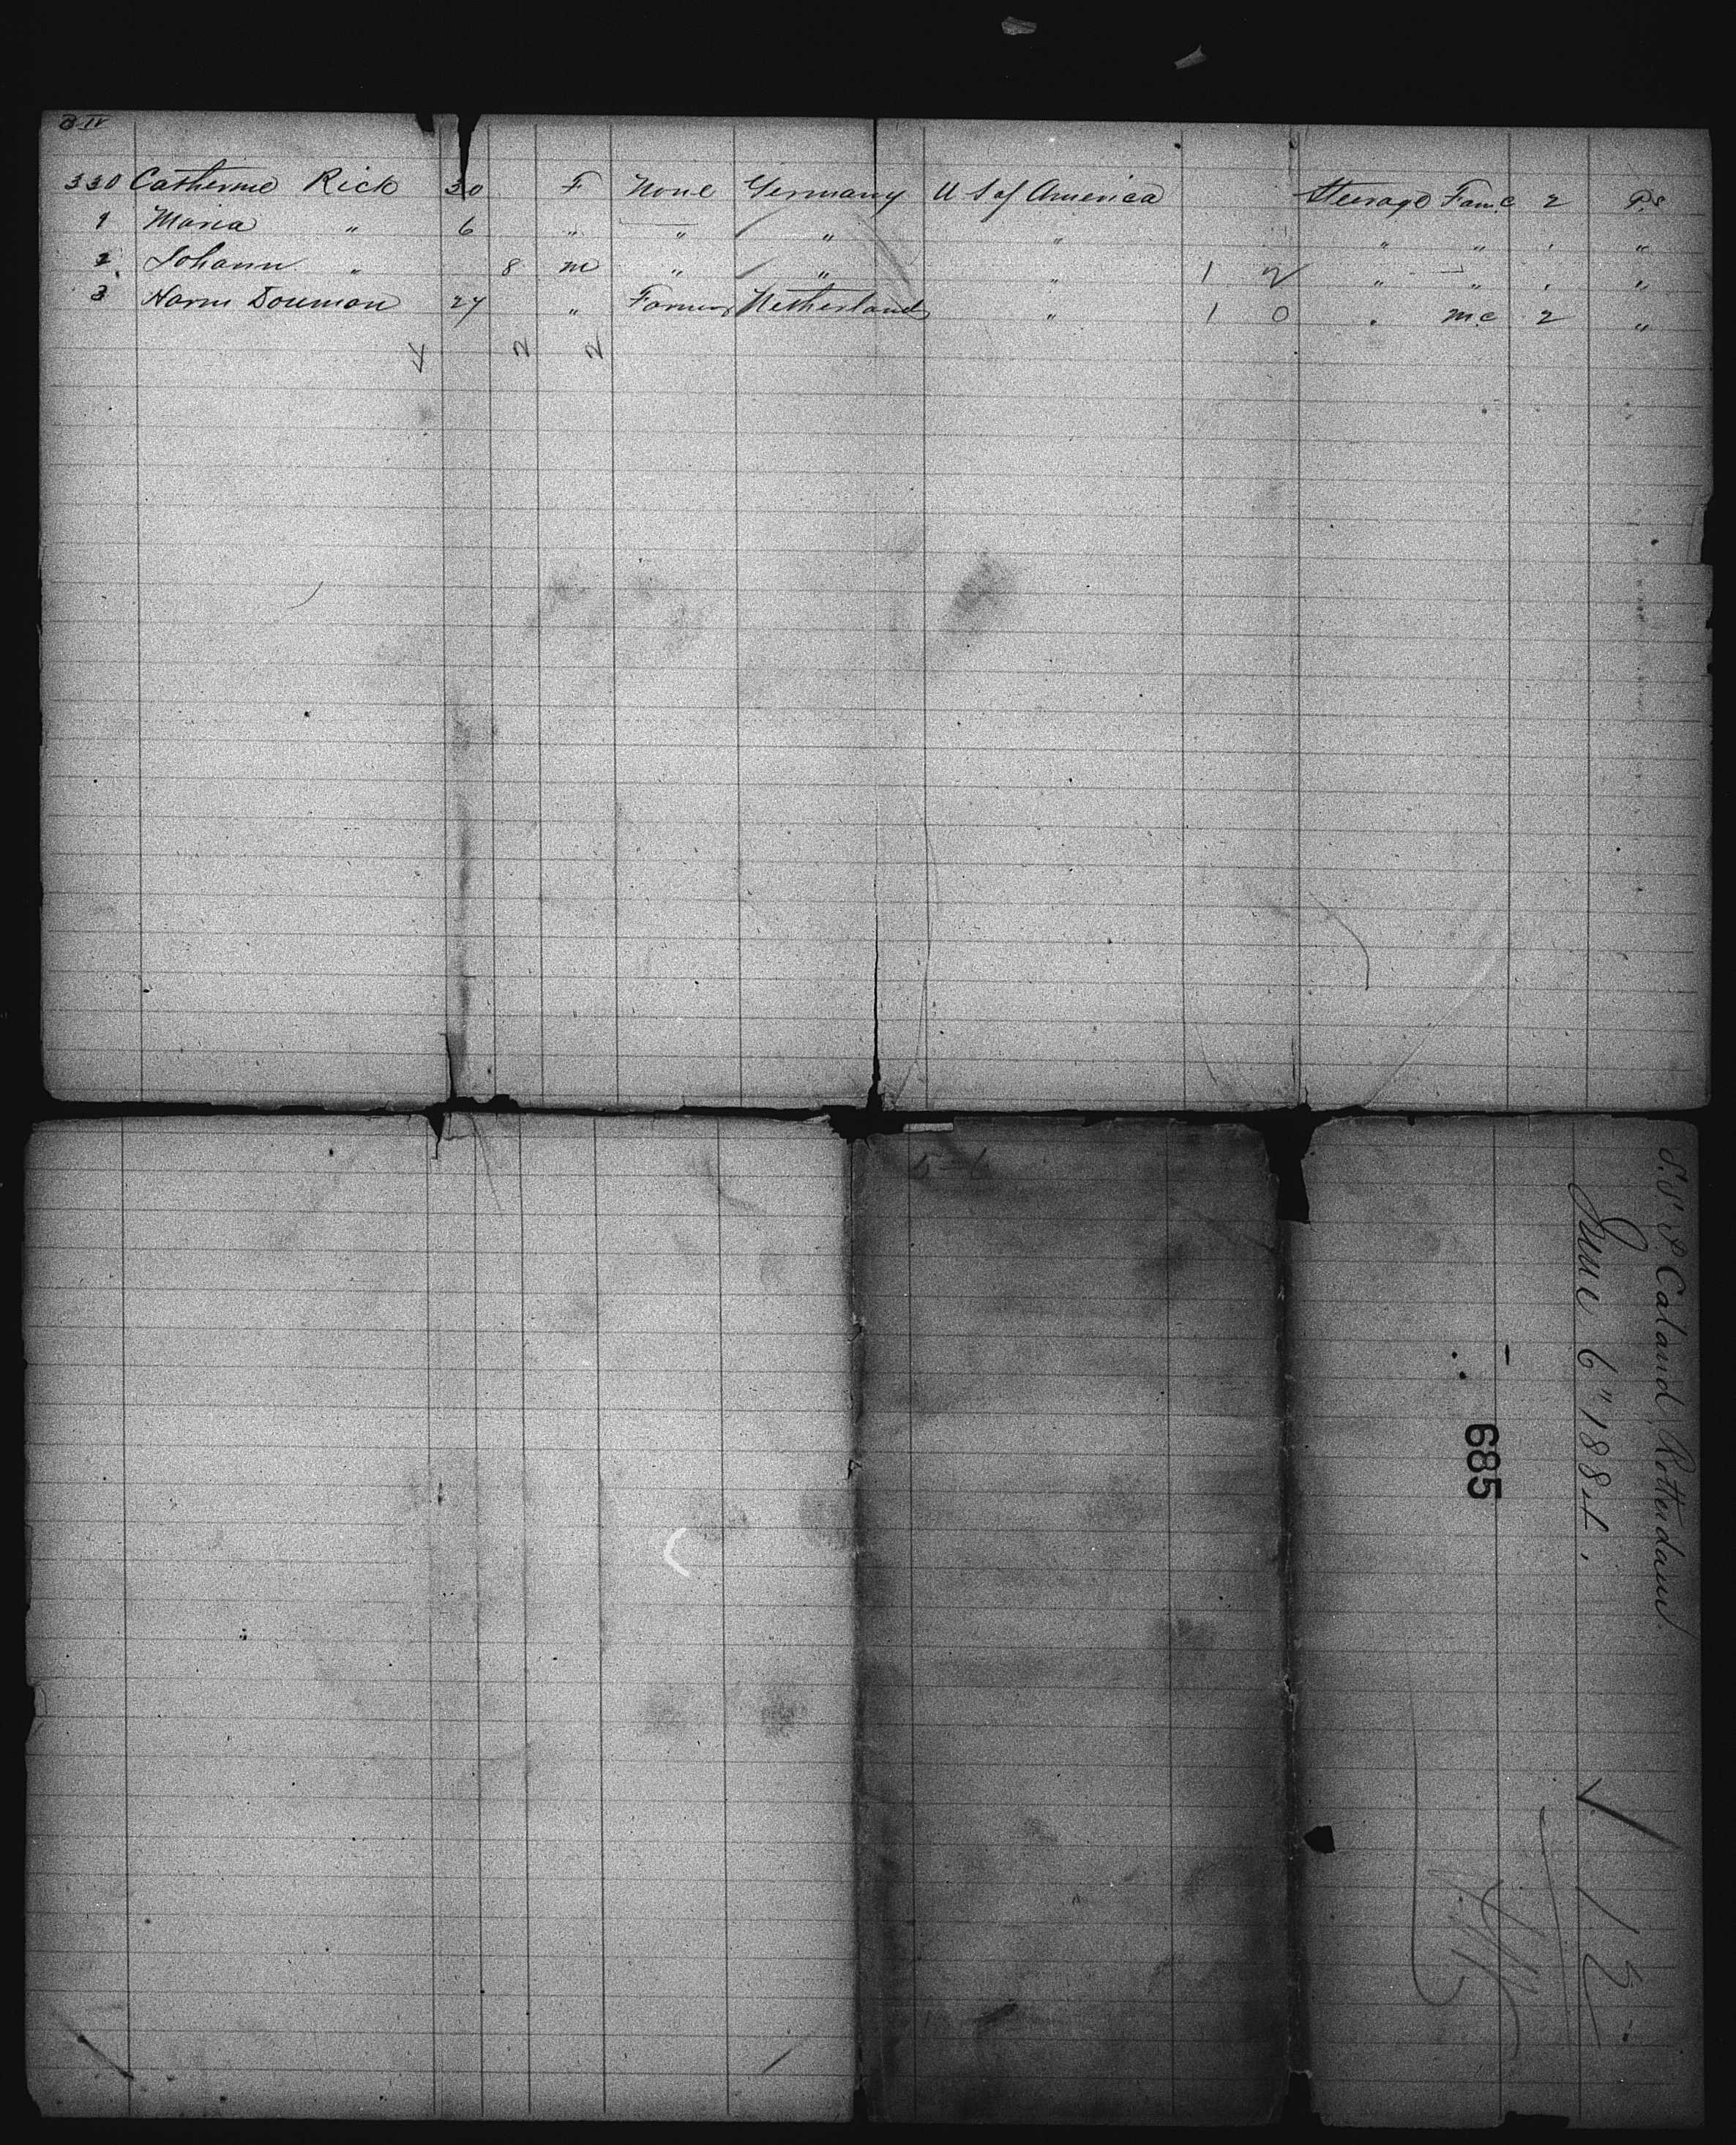 330 Catherine Rick 30 F None Germany U S of America Steerage Fam.c 2 P.s
1 Maria " 6 " " " " " " "
2 Johann " 8 m " " " 1 2 " " "
3 Harm Douman 27 " Farmer Netherlands " 1 0 " m.c 2 "
4 2 2
S.S. P. Caland, Rotterdam.
June 6" 1884.
685